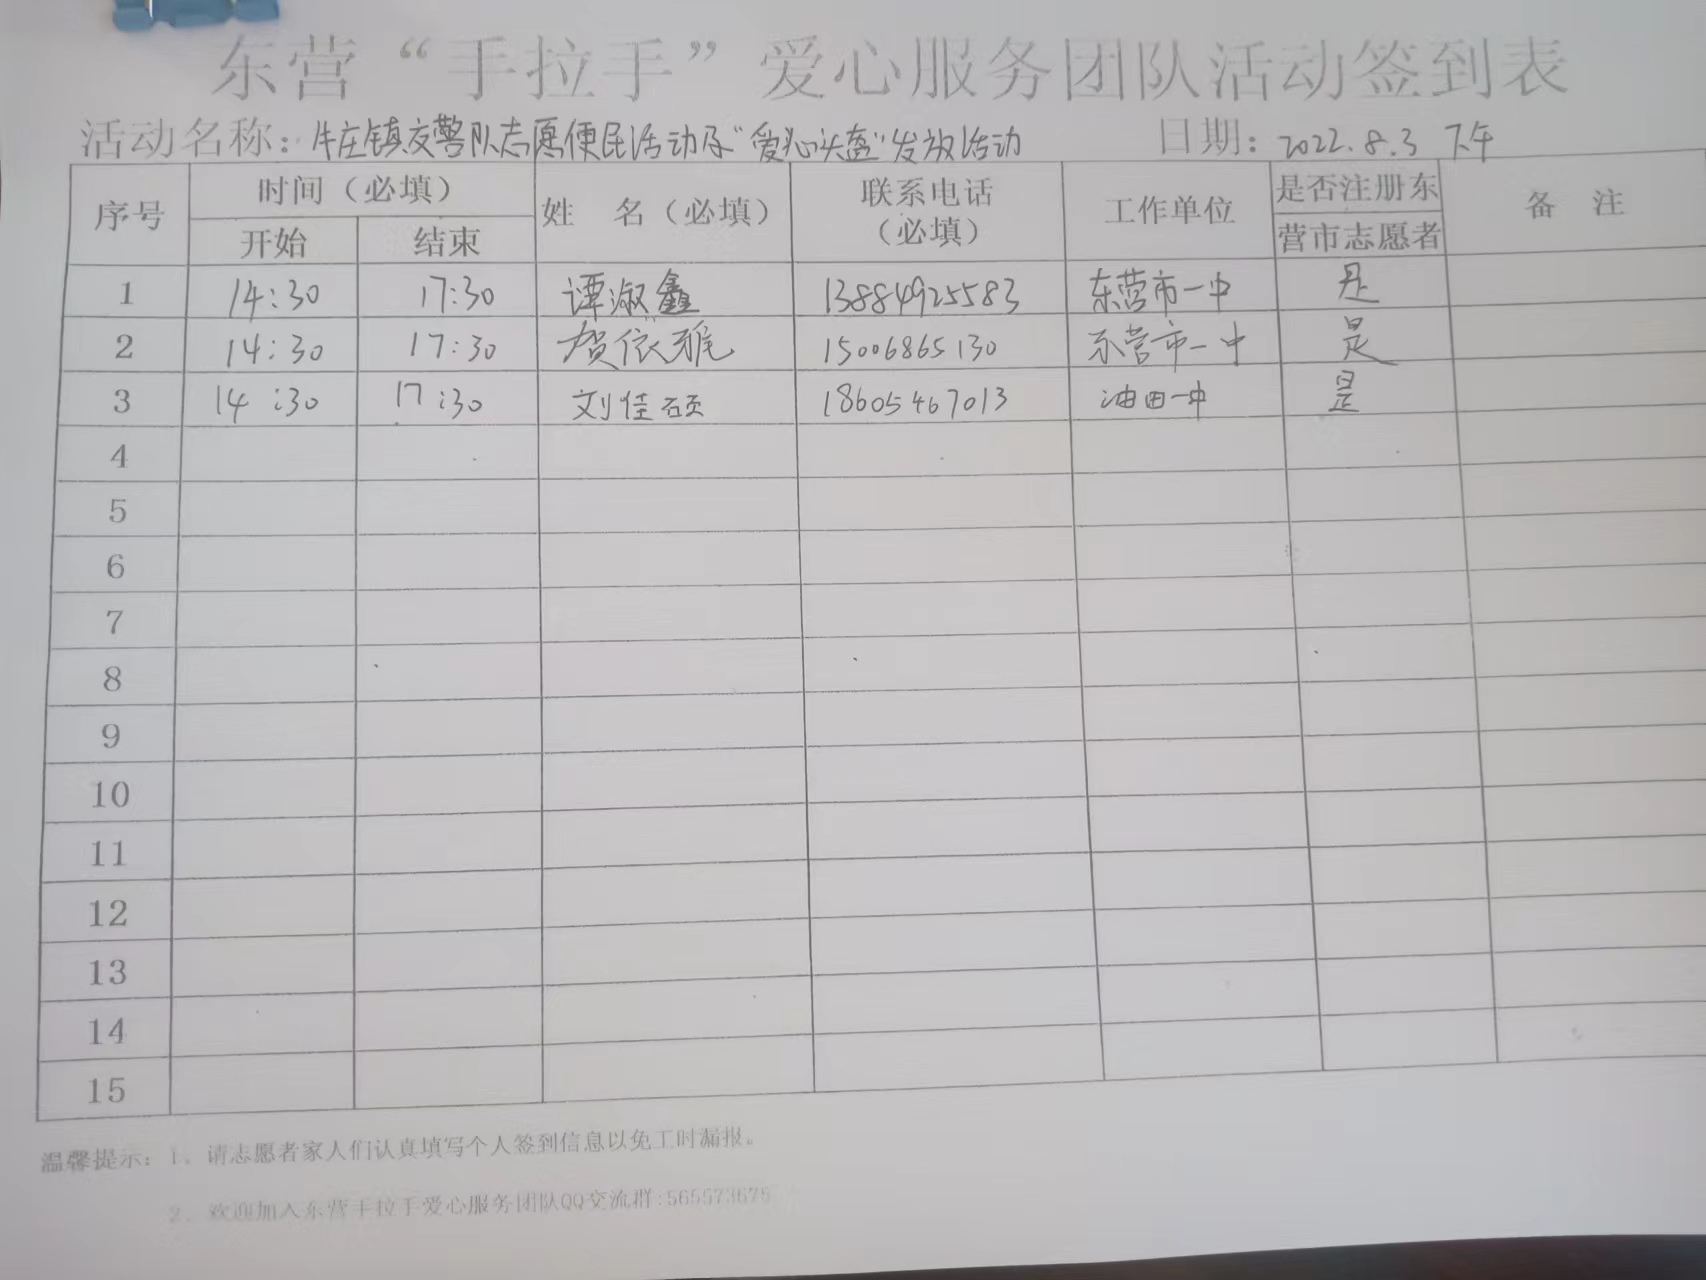 东营“手拉手”爱心服务团队活动签到表
活动名称：牛庄镇交警队志愿便民活动及“爱心头盔”发放活动 日期：2022.8.3 下午
序号 时间（必填） 姓 名（必填） 联系电话（必填） 工作单位 是否注册东营市志愿者 备 注
开始 结束
1 14:30 17:30 谭淑鑫 13884925583 东营市一中 是
2 14:30 17:30 贺依雅 15006865130 东营市一中 是
3 14:30 17:30 刘佳硕 18605467013 油田一中 是
4
5
6
7
8
9
10
11
12
13
14
15
温馨提示：1、请志愿者家人们认真填写个人签到信息以免工时漏报。
2、欢迎加入东营手拉手爱心服务团队QQ交流群:565573675